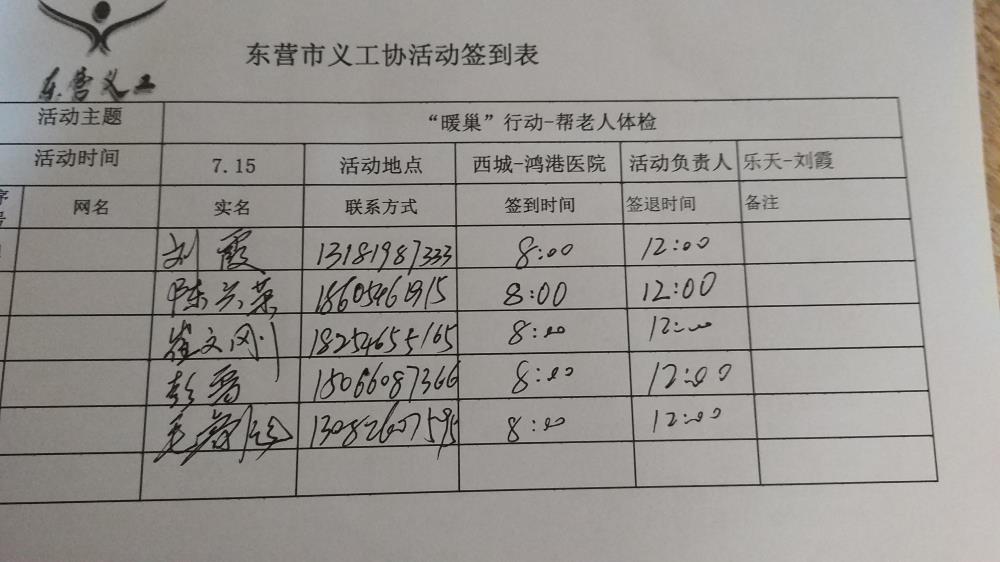 东营义工
东营市义工协活动签到表
活动主题 “暖巢”行动-帮老人体检
活动时间 7.15 活动地点 西城-鸿港医院 活动负责人 乐天-刘霞
序号 网名 实名 联系方式 签到时间 签退时间 备注
刘霞 13181987333 8:00 12:00
陈兰荣 8:00 12:00
崔文刚 18254655165 8:00 12:00
彭 15066087366 8:00 12:00
毛 13082607595 8:00 12:00